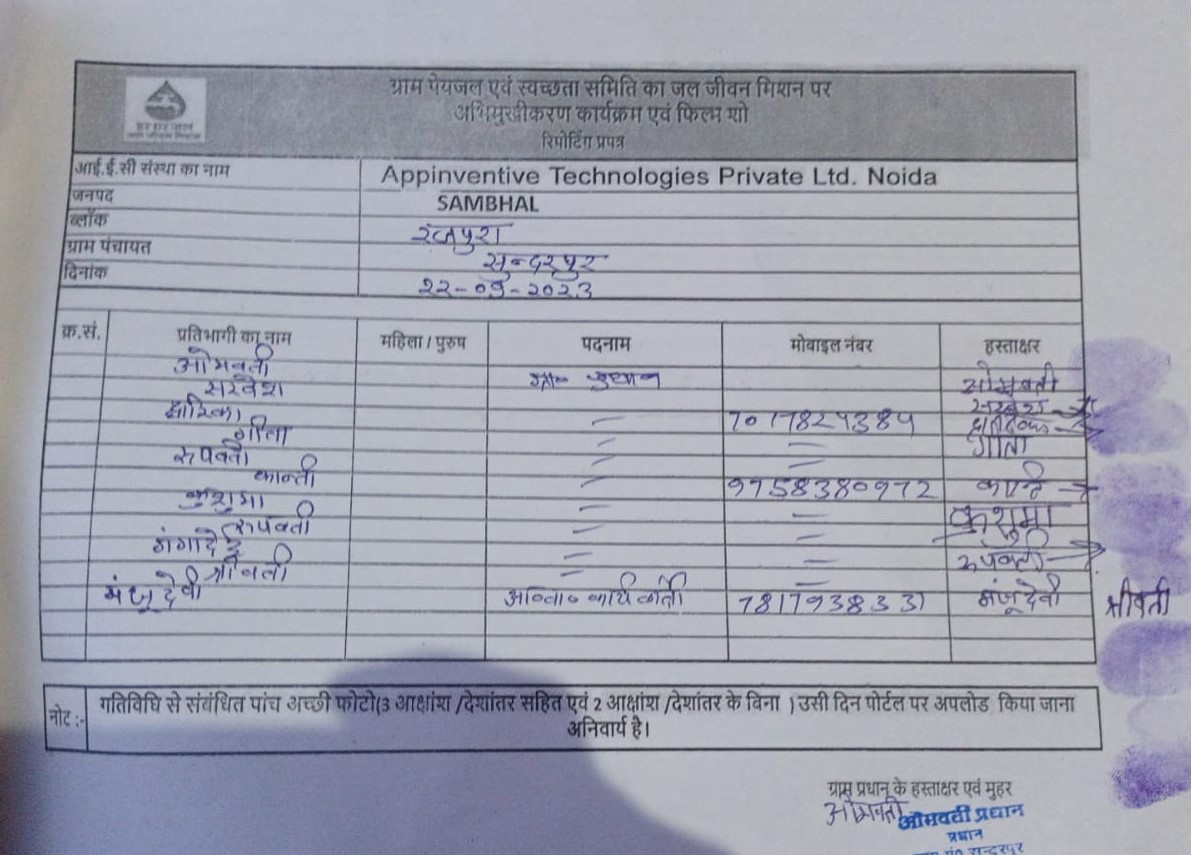 हर घर जल
जल जीवन मिशन
ग्राम पेयजल एवं स्वच्छता समिति का जल जीवन मिशन पर
अभिमुखीकरण कार्यक्रम एवं फिल्म शो
रिपोर्टिंग प्रपत्र
आई.ई.सी संस्था का नाम Appinventive Technologies Private Ltd. Noida
जनपद SAMBHAL
ब्लॉक रजपुरा
ग्राम पंचायत सुन्दरपुर
दिनांक 22-09-2023
क्र.सं. प्रतिभागी का नाम महिला / पुरुष पदनाम मोबाइल नंबर हस्ताक्षर
ओमवती ग्रा० प्रधान ओमवती
सरवेश सरवेश
7017824384
गीता गीता
रूपवती
कान्ती 9758380972
कुशुमा कुशुमा
रूपवती रूपवती
गंगादेई
श्रीवती
मंजू देवी कार्यकर्ती 7817938331 मंजू देवी श्रीवती
नोट :- गतिविधि से संबंधित पांच अच्छी फोटो(3 आक्षांश /देशांतर सहित एवं 2 आक्षांश /देशांतर के विना ) उसी दिन पोर्टल पर अपलोड किया जाना
अनिवार्य है।
ग्राम प्रधान के हस्ताक्षर एवं मुहर
ओमवती ओमवती प्रधान
प्रधान
सुन्दरपुर